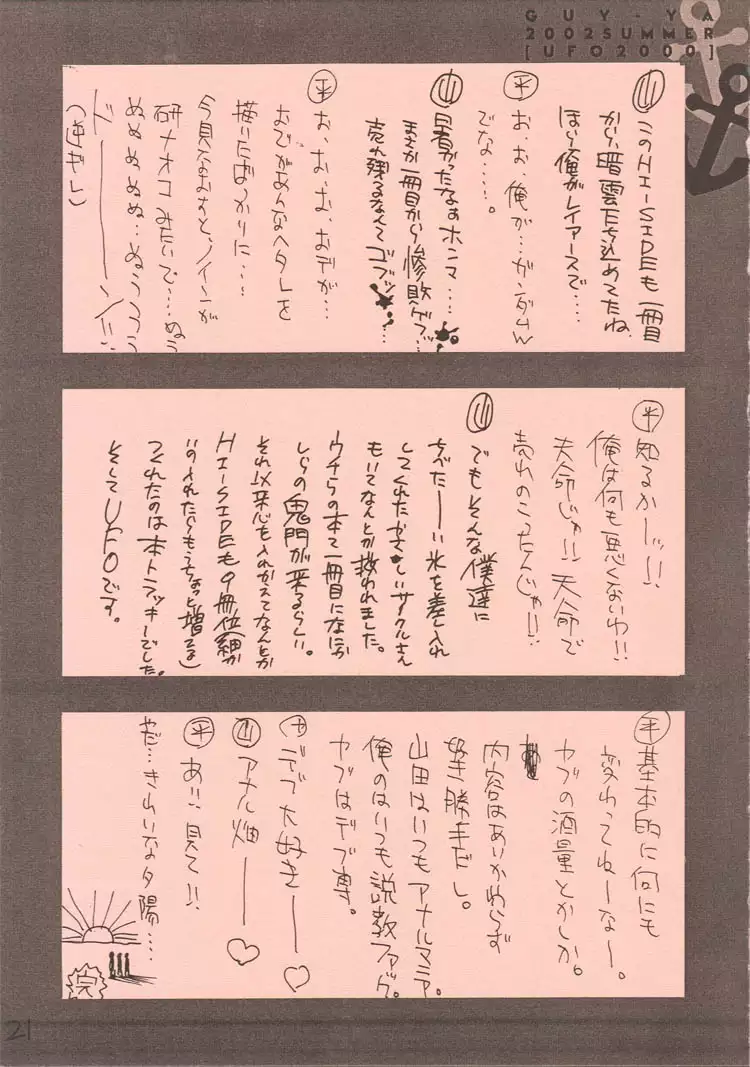 GUY-YA
2002SUMMER
[UFO2000]
山 このHI-SIDEも一冊目
から、暗雲たち込めてたね
ほら俺がレイアースで‥‥
平 お、お、俺が‥ガンダムW
でな‥‥。
山 暑かったなぁホンマ‥‥
まさか一冊目から惨敗ゲフ‥
売れ残るなんてゴブッ‥
平 お、お、お、おデが‥
おでがあんなヘタレを
描いたばっかりに‥‥
今見なおすと、ノインが
研ナオコみたいで‥‥ぬぅ
ぬぬぬぬぬ‥ぬぅ
ド
平 知るかーッ!!
俺は何も悪くないわ!!
天命じゃ!!天命で
売れのこったんじゃ!!
山 でもそんな僕達に
氷を差し入れ
してくれたやさしいサークルさん
もいてなんとか救われました。
ウチらの本て一冊目になにか
しらの鬼門が来るらしい。
それ以来心を入れかえてなんとか
HI-SIDEも9冊位(細か
いの入れたらもうちょっと増える)
つくれたのは本トラッキーでした。
そしてUFOです。
平 基本的に何にも
変わってねーなー。
ヤブの酒量とかしか。
内容はあいかわらず
好き勝手だし。
山田はいつもアナルマニア。
俺のはいつも説教ファック。
ヤブはデブ専。
ヤ デブ大好きー♡
山 アナル畑ー♡
平 あ!!見て!!
きれいな夕陽‥‥
完
21